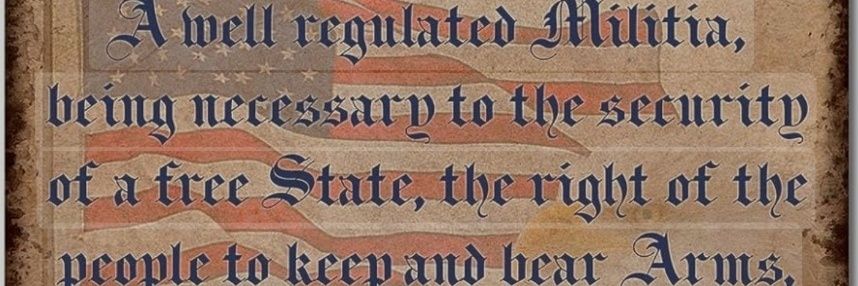 A well regulated Militia,
being necessary to the security
of a free State, the right of the
people to keep and bear Arms,